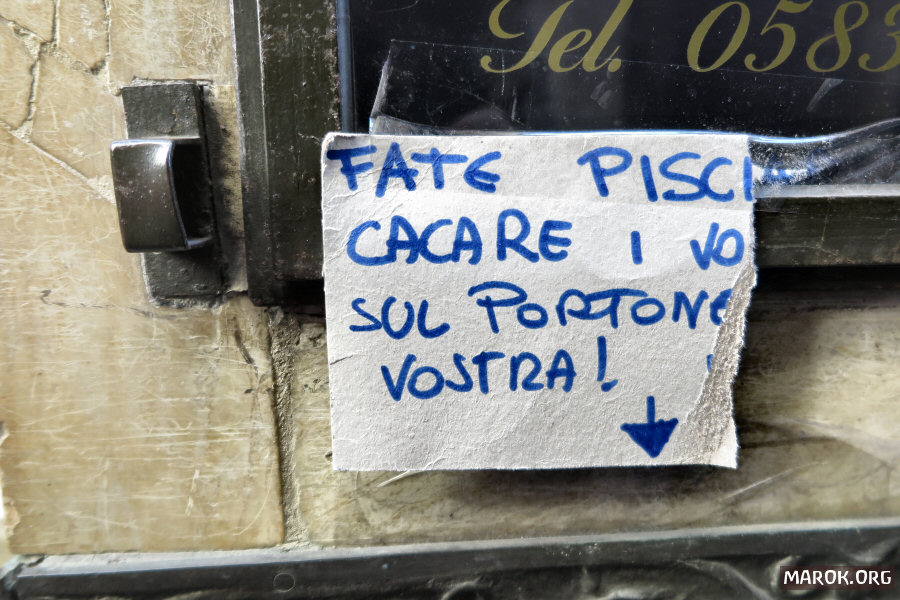 Tel. 0583
FATE PISCI
CACARE I VO
SUL PORTONE
VOSTRA!
MAROK.ORG